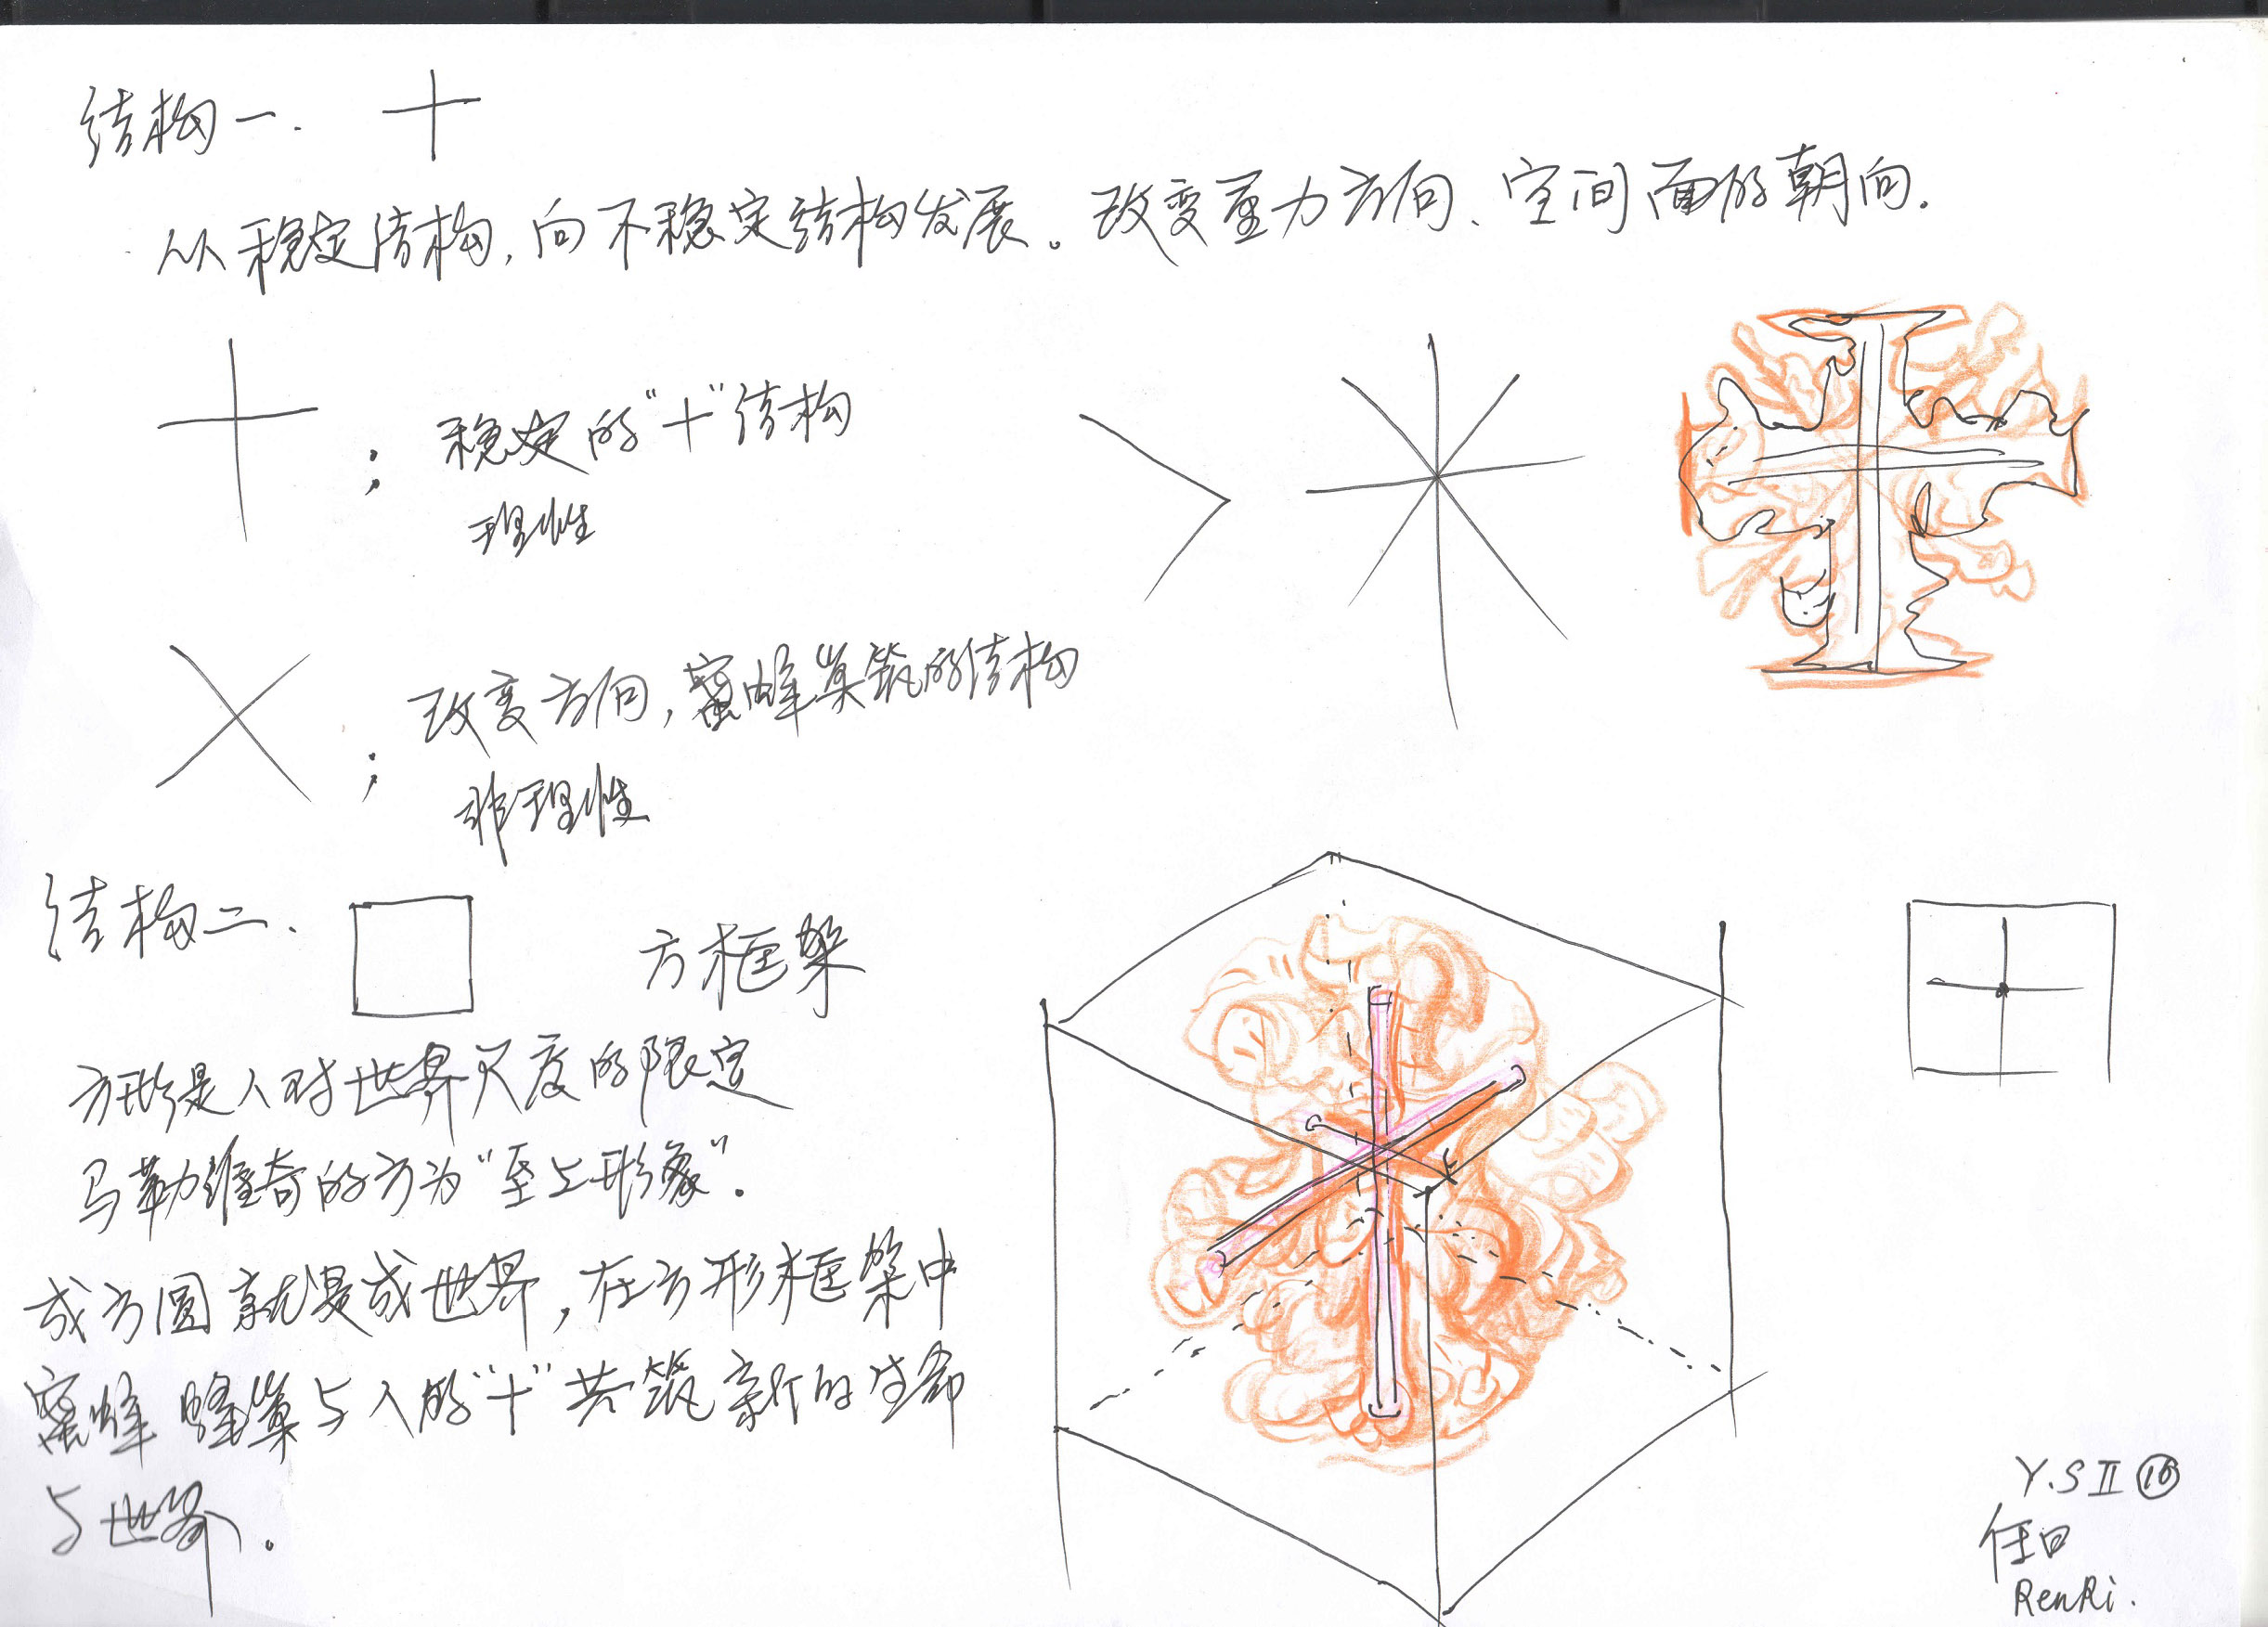 结构一. 十
从稳定结构,向不稳定结构发展。改变重力方向、空间面的朝向.
十 ; 稳定的“十”结构
理性
× ; 改变方向,蜜蜂巢筑的结构
非理性
结构二. 方框架
方形是人对世界尺度的限定
马勒维奇的方为“至上形象”.
成方圆就是成世界,在方形框架中
蜜蜂蜂巢与人的“十”共筑新的生命
与世界.
Y.S II ⑯
任日
RenRi.